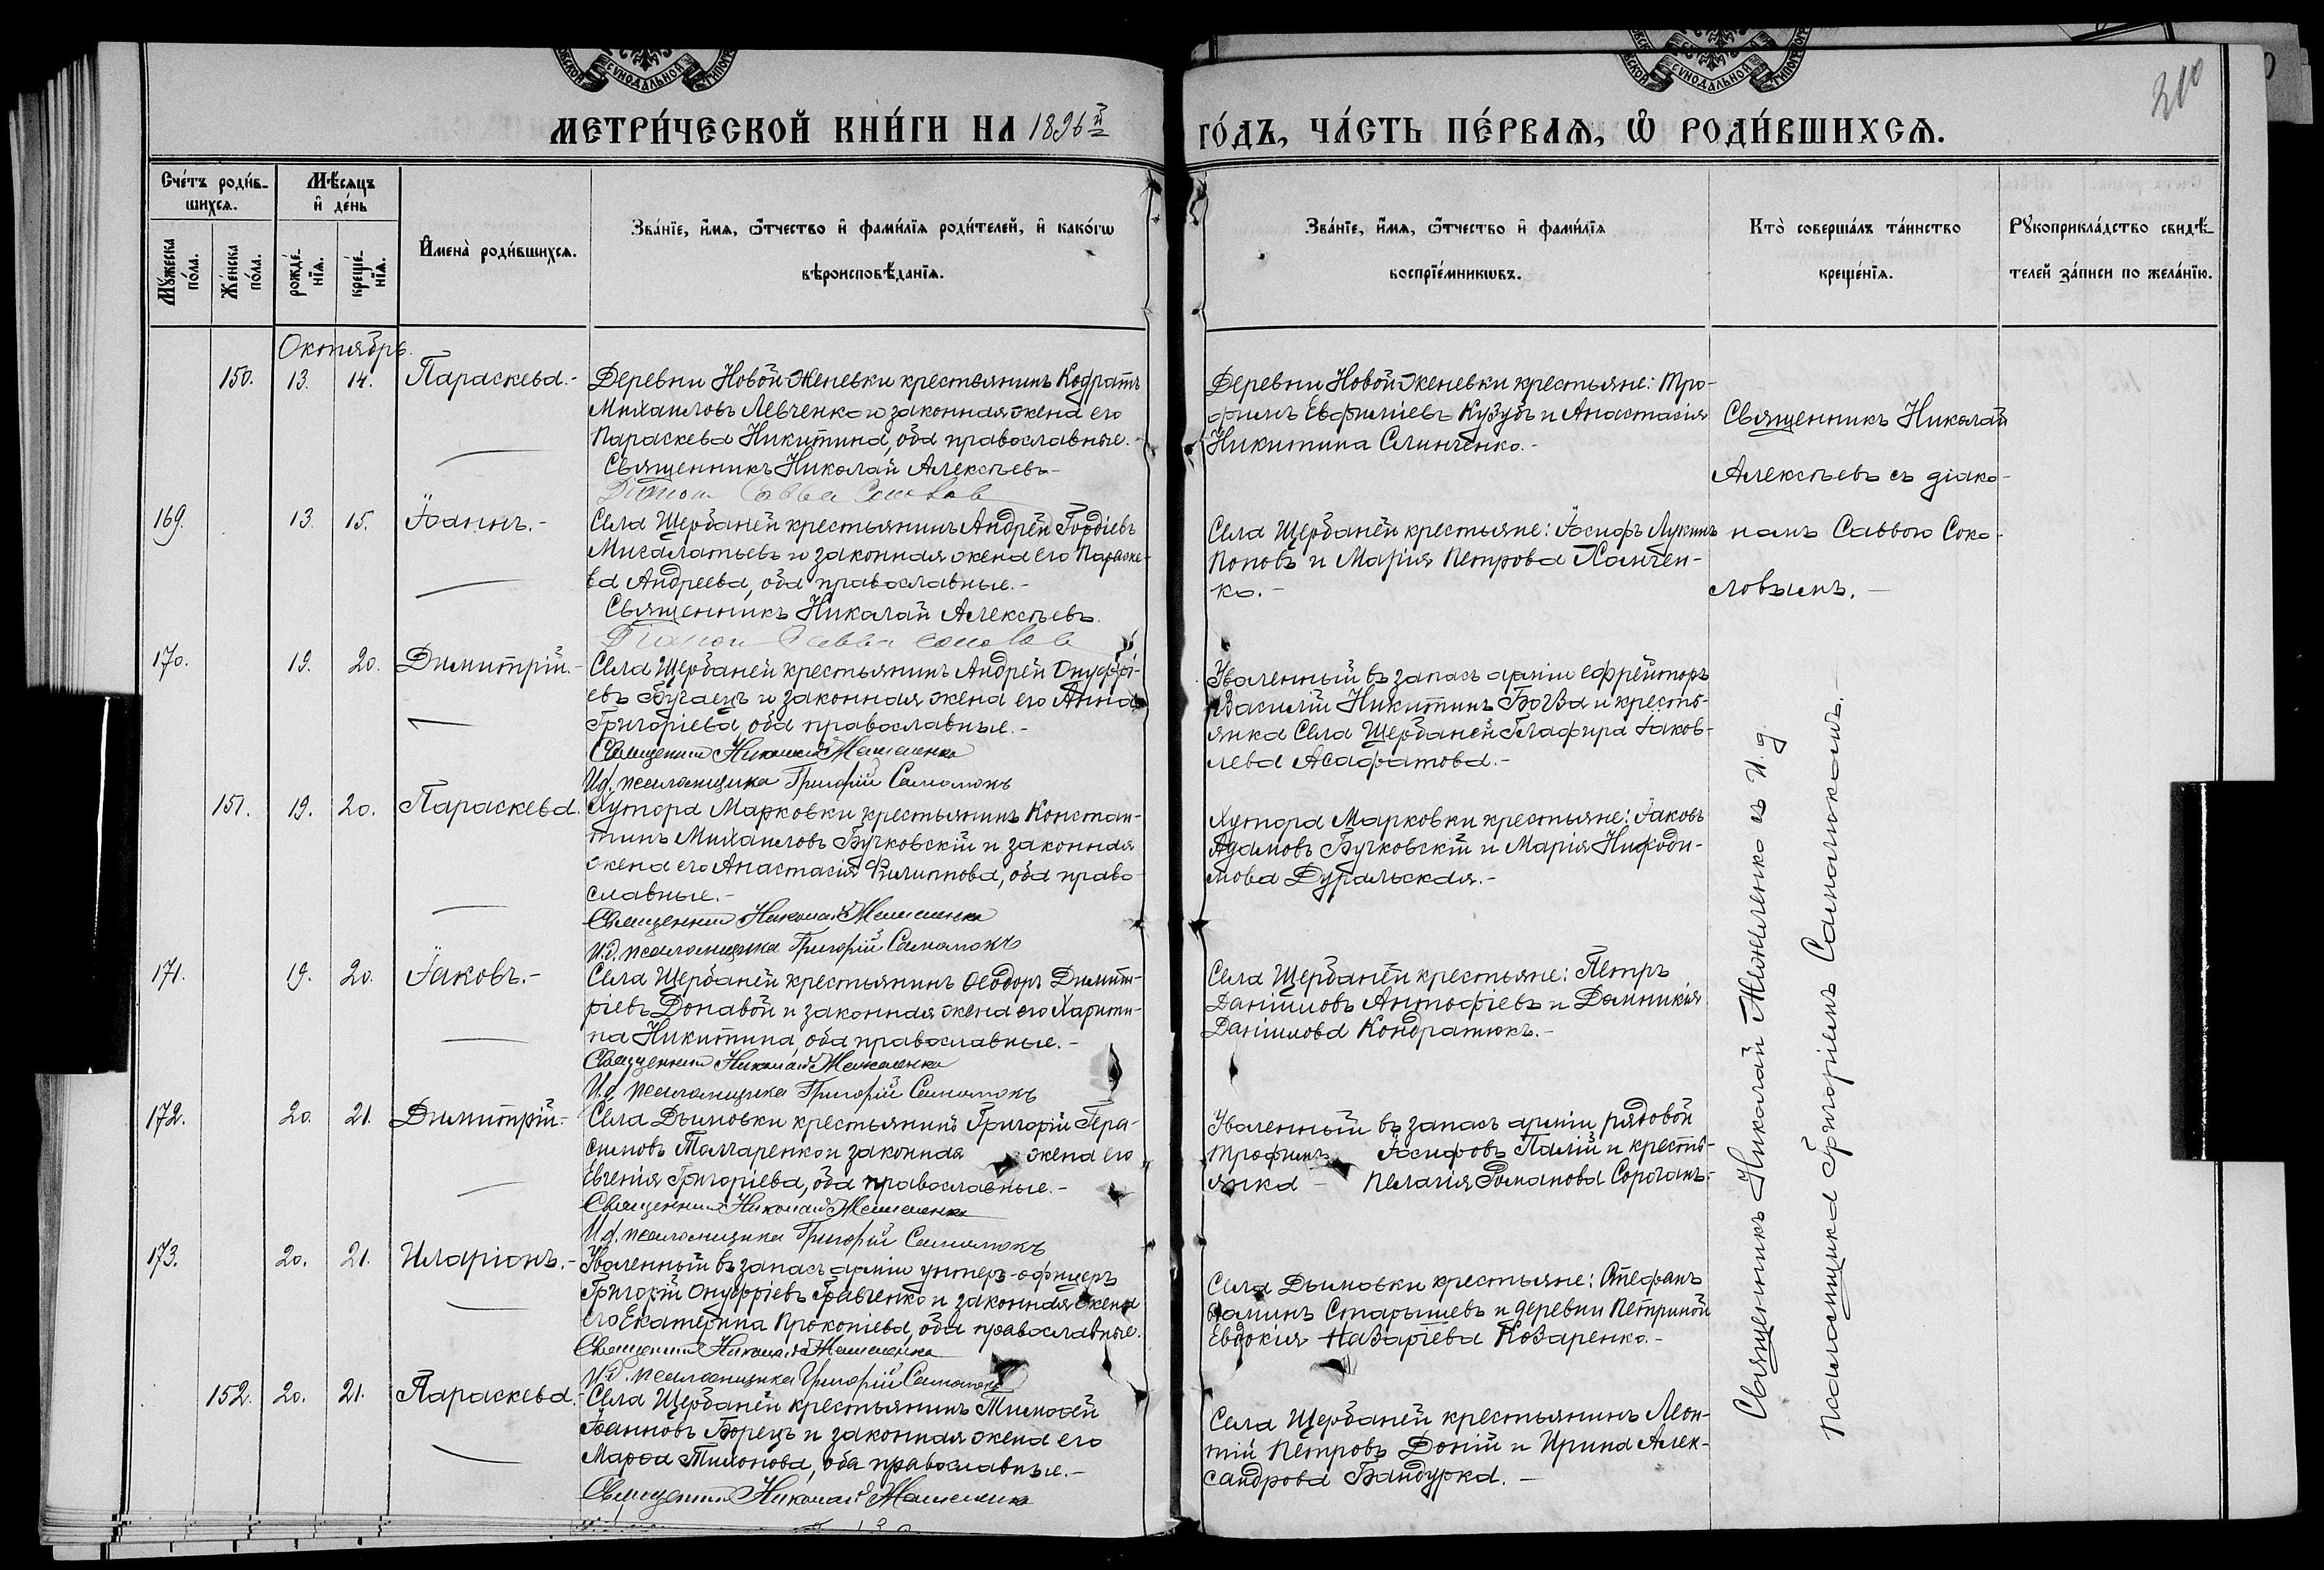 СѴНОДАЛЬНОЙ
СѴНОДАЛЬНОЙ
210
МЕТРИ́ЧЕСКОЙ КНИ́ГИ НА 1896й
ГО́ДЪ, ЧА́СТЬ ПЕ́РВАѦ, Ѡ҆ РОДИ́ВШИХСѦ.
Сче́тъ роди́в-
шихсѧ.
Мѣ́сѧцъ
и҆ де́нь
Мꙋ́жеска
по́ла.
Же́нска
по́ла.
рожде́-
нїѧ.
креще́-
нїѧ.
И҆мена̀ роди́вшихсѧ.
Зва́нїе, и҆́мѧ, ѻ҆́тчество и҆ фами́лїѧ роди́телей, и҆ како́гѡ
вѣроисповѣ́данїѧ.
Зва́нїе, и҆́мѧ, ѻ҆́тчество и҆ фами́лїѧ
воспрїе́мникѡвъ.
Кто̀ соверша́лъ та́инство
креще́нїѧ.
Рꙋкоприкла́дство свидѣ́-
телей за́писи по жела́нїю.
Октябрь.
150. 13. 14. Параскева.-
Деревни Новой Женевки крестьянинъ Кодратъ
Михаиловъ Левченко и законная жена его
Параскева Никитина, оба православные.-
Священникъ Николай Алексѣевъ
Діаконъ Савва Соколов
Деревни Новой Женевки крестьяне: Тро-
фимъ Евфиміевъ Кузубъ и Анастасія
Никитина Слинченко.-
Священникъ Николай
Алексѣевъ съ діако-
номъ Саввою Соко-
ловымъ.-
169. 13. 15. Іоаннъ.-
Села Щербаней крестьянинъ Андрей Гордіевъ
Мигалатьевъ и законная жена его Параске-
ва Андреева, оба православные.-
Священникъ Николай Алексѣевъ.
Діакон Савва Соколов
Села Щербаней крестьяне: Іосифъ Лукинъ
Поповъ и Марія Петрова Ханчен-
ко.-
170. 19. 20. Димитрій.-
Села Щербаней крестьянинъ Андрей Онуфрі-
евъ Бугаецъ и законная жена его Анна
Григоріева, оба православные.-
Священник Николай
И.д. псаломщика Григорій Самолюкъ
Уволенный въ запасъ арміи ефрейторъ
Василій Никитинъ Богза и кресть-
янка Села Щербаней Глафира Іаков-
лева Асафатова.-
151. 19. 20. Параскева.
Хутора Марковки крестьянинъ Констан-
тинъ Михаиловъ Бучковскій и законная
жена его Анастасія Филиппова, оба право-
славные.-
Священник Николай
И.д. псаломщика Григорій Самолюкъ
Хутора Марковки крестьяне: Іаковъ
Адамовъ Бучковскій и Марія Никоди-
мова Дуральская.-
171. 19. 20. Іаковъ.-
Села Щербаней крестьянинъ Ѳеодоръ Димит-
ріевъ Донавой и законная жена его Харити-
на Никитина, оба православные.-
Священник Николай
И.д. псаломщика Григорій Самолюкъ
Села Щербаней крестьяне: Петръ
Даніиловъ Антофіевъ и Домникія
Даніилова Кондратюкъ.-
172. 20. 21. Димитрій.-
Села Дымовки крестьянинъ Григорій Гера-
симовъ Толчаренко и законная жена его
Евгенія Григоріева, оба православные.-
Священник Николай
И.д. псаломщика Григорій Самолюкъ
Уволенный въ запасъ арміи рядовой
Трофимъ Іосифовъ Палій и кресть-
янка - Пелагія Романова Сорочанъ.-
173. 20. 21. Иларіонъ.-
Уволенный въ запасъ арміи унтеръ-офицеръ
Григорій Онуфріевъ Гравченко и законная жена
его Екатерина Прокопіева, оба православные.
Священник Николай
И.д. псаломщика Григорій Самолюкъ
Села Дымовки крестьяне: Стефанъ
Старышевъ и деревни Петриной
Евдокия Назаріева Козаренко.-
152. 20. 21. Параскева.-
Села Щербаней крестьянинъ Тимоѳей
Іоанновъ Борецъ и законная жена его
Марѳа Тихонова, оба православные.-
Священник Николай
Села Щербаней крестьянинъ Леон-
тій Петровъ Доній и Ирина Алек-
сандрова Бандурка.-
Священникъ Николай съ И. д
псаломщика Григоріемъ Самолюкомъ.-